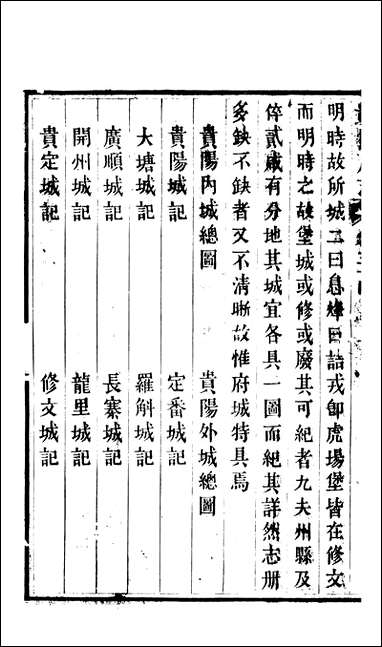 明時故所城二曰息烽曰詰戎卽虎場堡皆在修文
而明時之故堡城或修或廢其可紀者九夫州縣及
倅貳咸有分地其城宜各具一圖而紀其詳然志册
多缺不缺者又不清晰故惟府城特具焉
貴陽內城總圖　貴陽外城總圖
貴陽城記　定番城記
大塘城記　羅斛城記
廣順城記　長寨城記
開州城記　龍里城記
貴定城記　修文城記